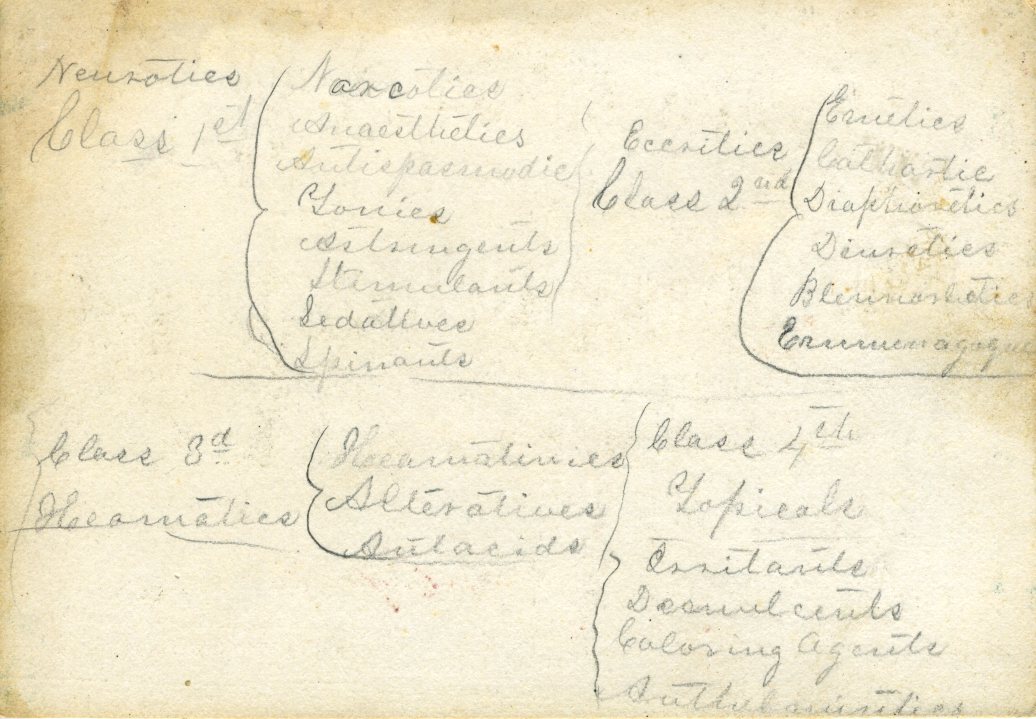 Neurotics
Class 1st
Narcotics
Anaesthetics
Antispasmodic
Tonics
Astringents
Stemulants
Sedatives
Spinants
Eccritics
Class 2nd
Emetics
Cathartic
Diaphoretics
Diuretics
Emmenagogue
Class 3d
Heamatics
Heamatinics
Alteratives
Antacids
Class 4th
Topicals
Irritants
Demulcents
Coloring Agents